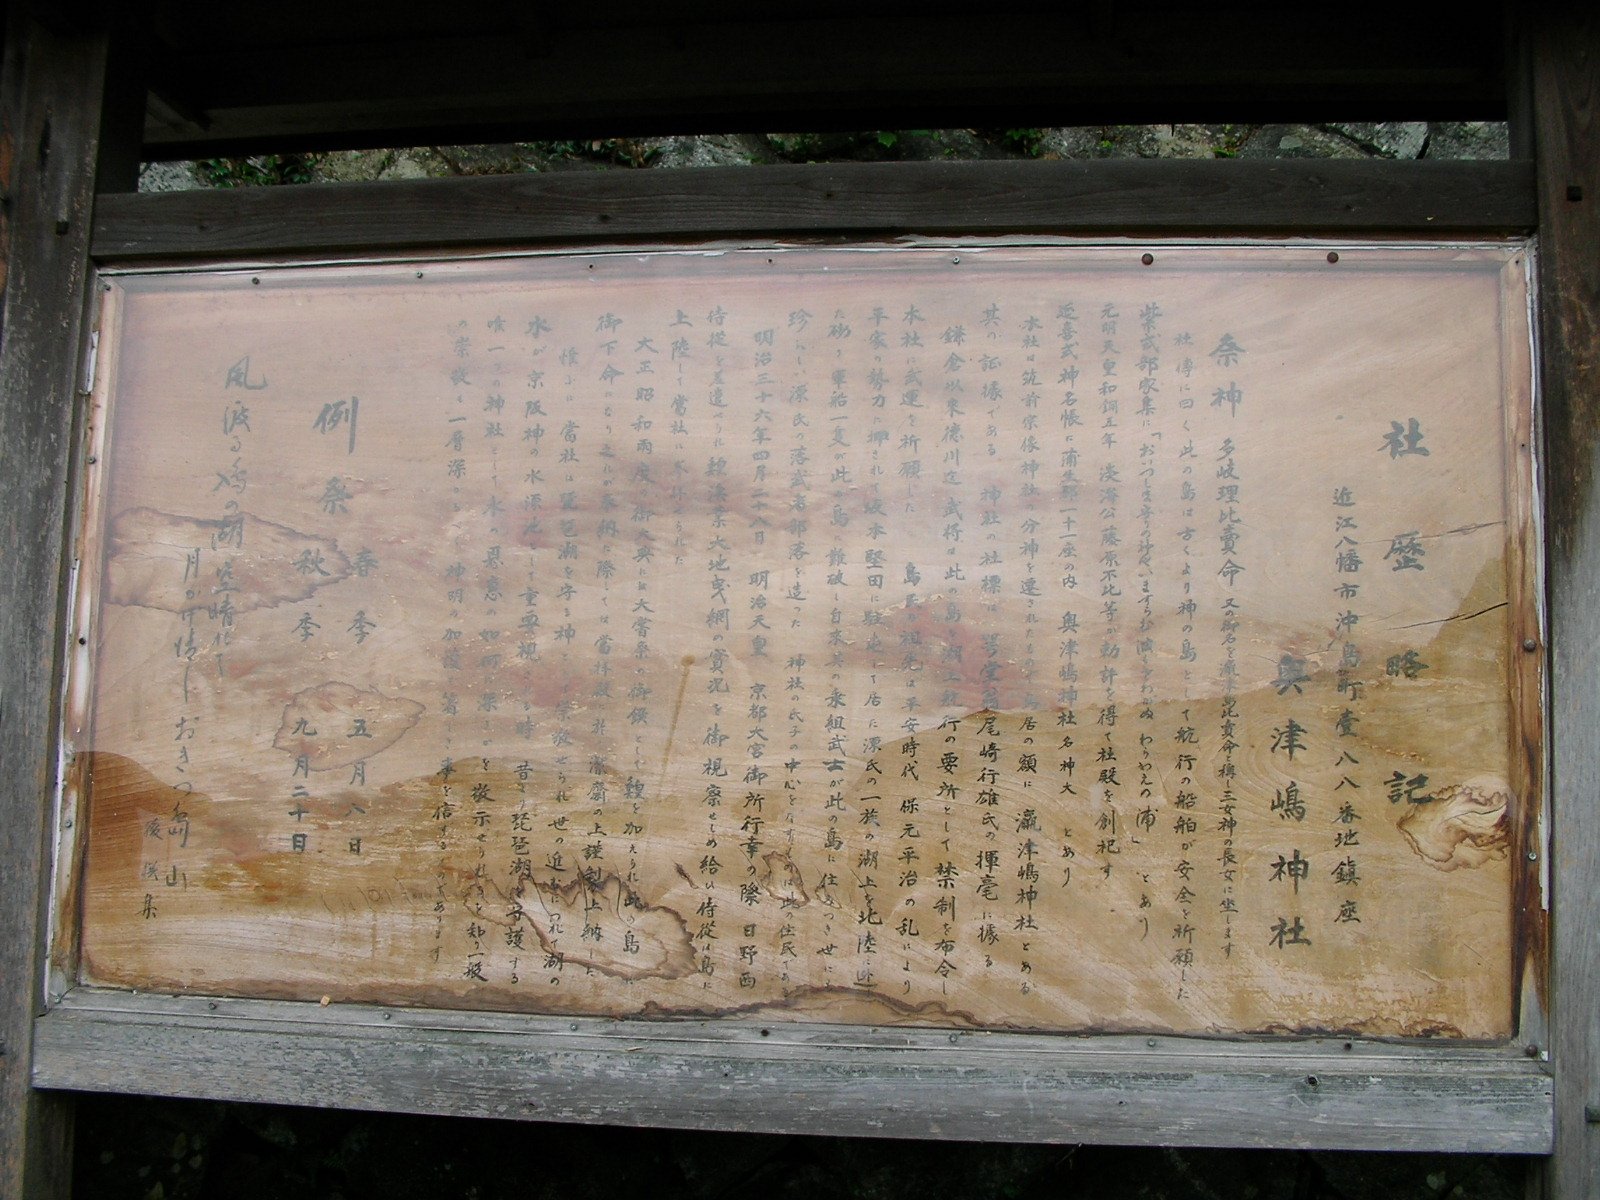 社歴略記
近江八幡市沖島町壹八八番地鎮座
奥津嶋神社
祭神 多岐理比賣命 又の御名を瀛津島比賣命と稱し三女神の長女に坐します
社傳に曰く此の島は古くより神の島として航行の船舶が安全を祈願した
紫式部家集に「おいつしま守りの神やいますらむ波もさわがぬわらわえの浦」とあり
元明天皇和銅五年 淡海公藤原不比等が勅許を得て社殿を創祀す
延喜式神名帳に蒲生郡十一座の内 奥津嶋神社 名神大 とあり
本社は筑前宗像神社の分神を遷されたもので鳥居の額に 瀛津嶋神社 とある
其の証據である 神社の社標は 咢堂翁尾崎行雄氏の揮毫に據る
鎌倉以来徳川迄 武将は此の島を湖上航行の要所として禁制を布令し
本社に武運を祈願した 島民の祖先は平安時代 保元平治の乱により
平家の勢力に押されて坂本堅田に駐屯して居た源氏の一族の湖上を北陸に逃
た 軍船一隻が此の島に難破し自来其の乗組武士が此の島に住みつき世にも
珍らしい源氏の落武者部落を造った 神社の氏子の中心をなすものは此の住民である
明治三十六年四月二十八日 明治天皇 京都大宮御所行幸の際 日野西
侍従を差遣せられ 漁業大地曳網の實況を御視察せしめ給ひ侍従は島に
上陸して當社に参拝せられた
大正昭和両度の御大典には大嘗祭の御饌として鯉を加えられ此の島に
御下命になり之れが奉納に際しては當拝殿に於て潔齋の上謹製上納した
惟ふに 當社は琵琶湖を守る神として崇敬せられ世の進むにつれて湖の
水が京阪神の水源地として重要視される時 昔より琵琶湖を守護する
唯一つの神社として水の恩恵の如何に深きかを教示せられるを知り一般
の崇敬も一層深かるべく神明の加護も篤しき事を信ずるものであります
例祭
春季 五月八日
秋季 九月二十日
風渡る 湖 晴れて
月かげ清しおきつ島山
集